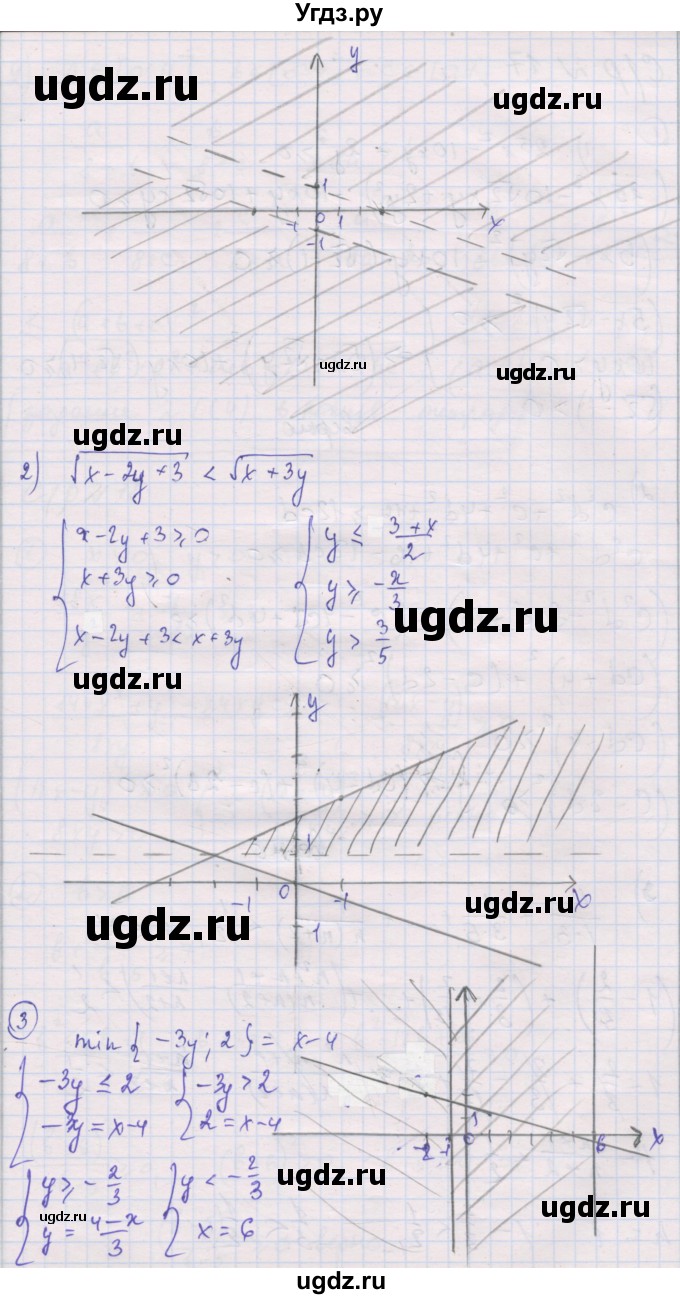 Угдз.ру
ugdz.ru
ugdz.ru
y
1
-1 0 1 x
-1
ugdz.ru
ugdz.ru
ugdz.ru
2) √(x - 2y + 3) < √(x + 3y)
{ x - 2y + 3 ≥ 0 { y ≤ (3 + x)/2
x + 3y ≥ 0 y ≥ -x/3
x - 2y + 3 < x + 3y y > 3/5
ugdz.ru
ugdz.ru
y
1
-1 0 1 x
1
ugdz.ru
ugdz.ru
3 min { -3y; 2 } = x - 4
{ -3y ≤ 2 { -3y > 2
-3y = x - 4 2 = x - 4
1
-2 -1 0 6 x
{ y ≥ -2/3 { y < -2/3
y = (4 - x)/3 x = 6
ugdz.ru
ugdz.ru
ugdz.ru
ugdz.ru